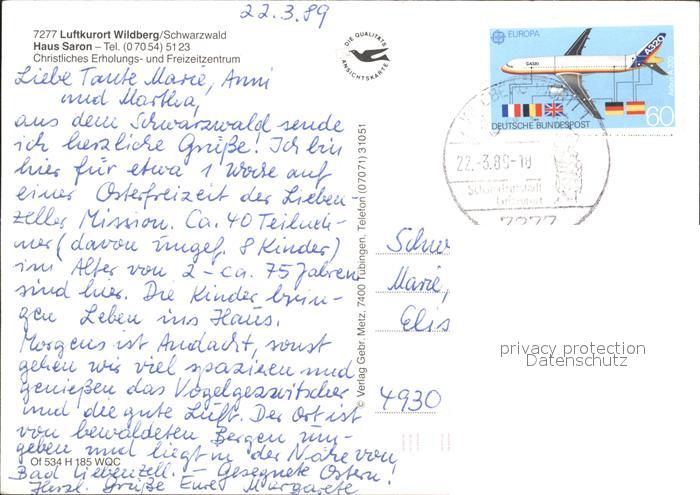 22.3.89
7277 Luftkurort Wildberg/Schwarzwald
Haus Saron – Tel. (0 70 54) 51 23
Christliches Erholungs- und Freizeitzentrum
DIE QUALITÄTS
ANSICHTSKARTE
Liebe Tante Marie, Anni
und Martha,
aus dem Schwarzwald sende
ich herzliche Grüße! Ich bin
hier für etwa 1 Woche auf
einer Osterfreizeit der Lieben-
zeller Mission. Ca. 40 Teilneh-
mer (davon ungef. 8 Kinder)
im Alter von 2 – ca. 75 Jahren
sind hier. Die Kinder brin-
gen Leben ins Haus.
Morgens ist Andacht, sonst
gehen wir viel spazieren und
genießen das Vogelgezwitscher
und die gute Luft. Der Ort ist
von bewaldeten Bergen um-
geben und liegt in der Nähe von
Bad Liebenzell. – Gesegnete Ostern!
Herzl. Grüße Eure Margarete
Of 534 H 185 WQC
© Verlag Gebr. Metz, 7400 Tübingen, Telefon (07071) 31051
EUROPA
A320
DEUTSCHE BUNDESPOST
60
22.-3.89-18
Schäferlaufstadt
Luftkurort
7277
Schw
Marie,
Elis
4930
privacy protection
Datenschutz